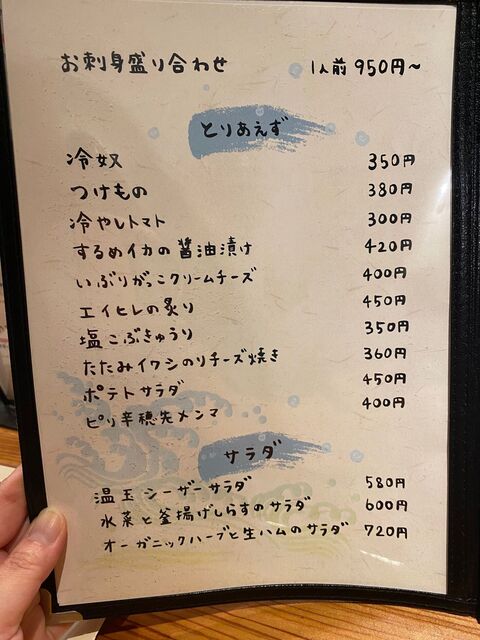 お刺身盛り合わせ 1人前 950円～
とりあえず
冷奴 350円
つけもの 380円
冷やしトマト 300円
するめイカの醤油漬け 420円
いぶりがっこクリームチーズ 400円
エイヒレの炙り 450円
塩こぶきゅうり 350円
たたみイワシのりチーズ焼き 360円
ポテトサラダ 450円
ピリ辛穂先メンマ 400円
サラダ
温玉シーザーサラダ 580円
水菜と釜揚げしらすのサラダ 600円
オーガニックハーブと生ハムのサラダ 720円